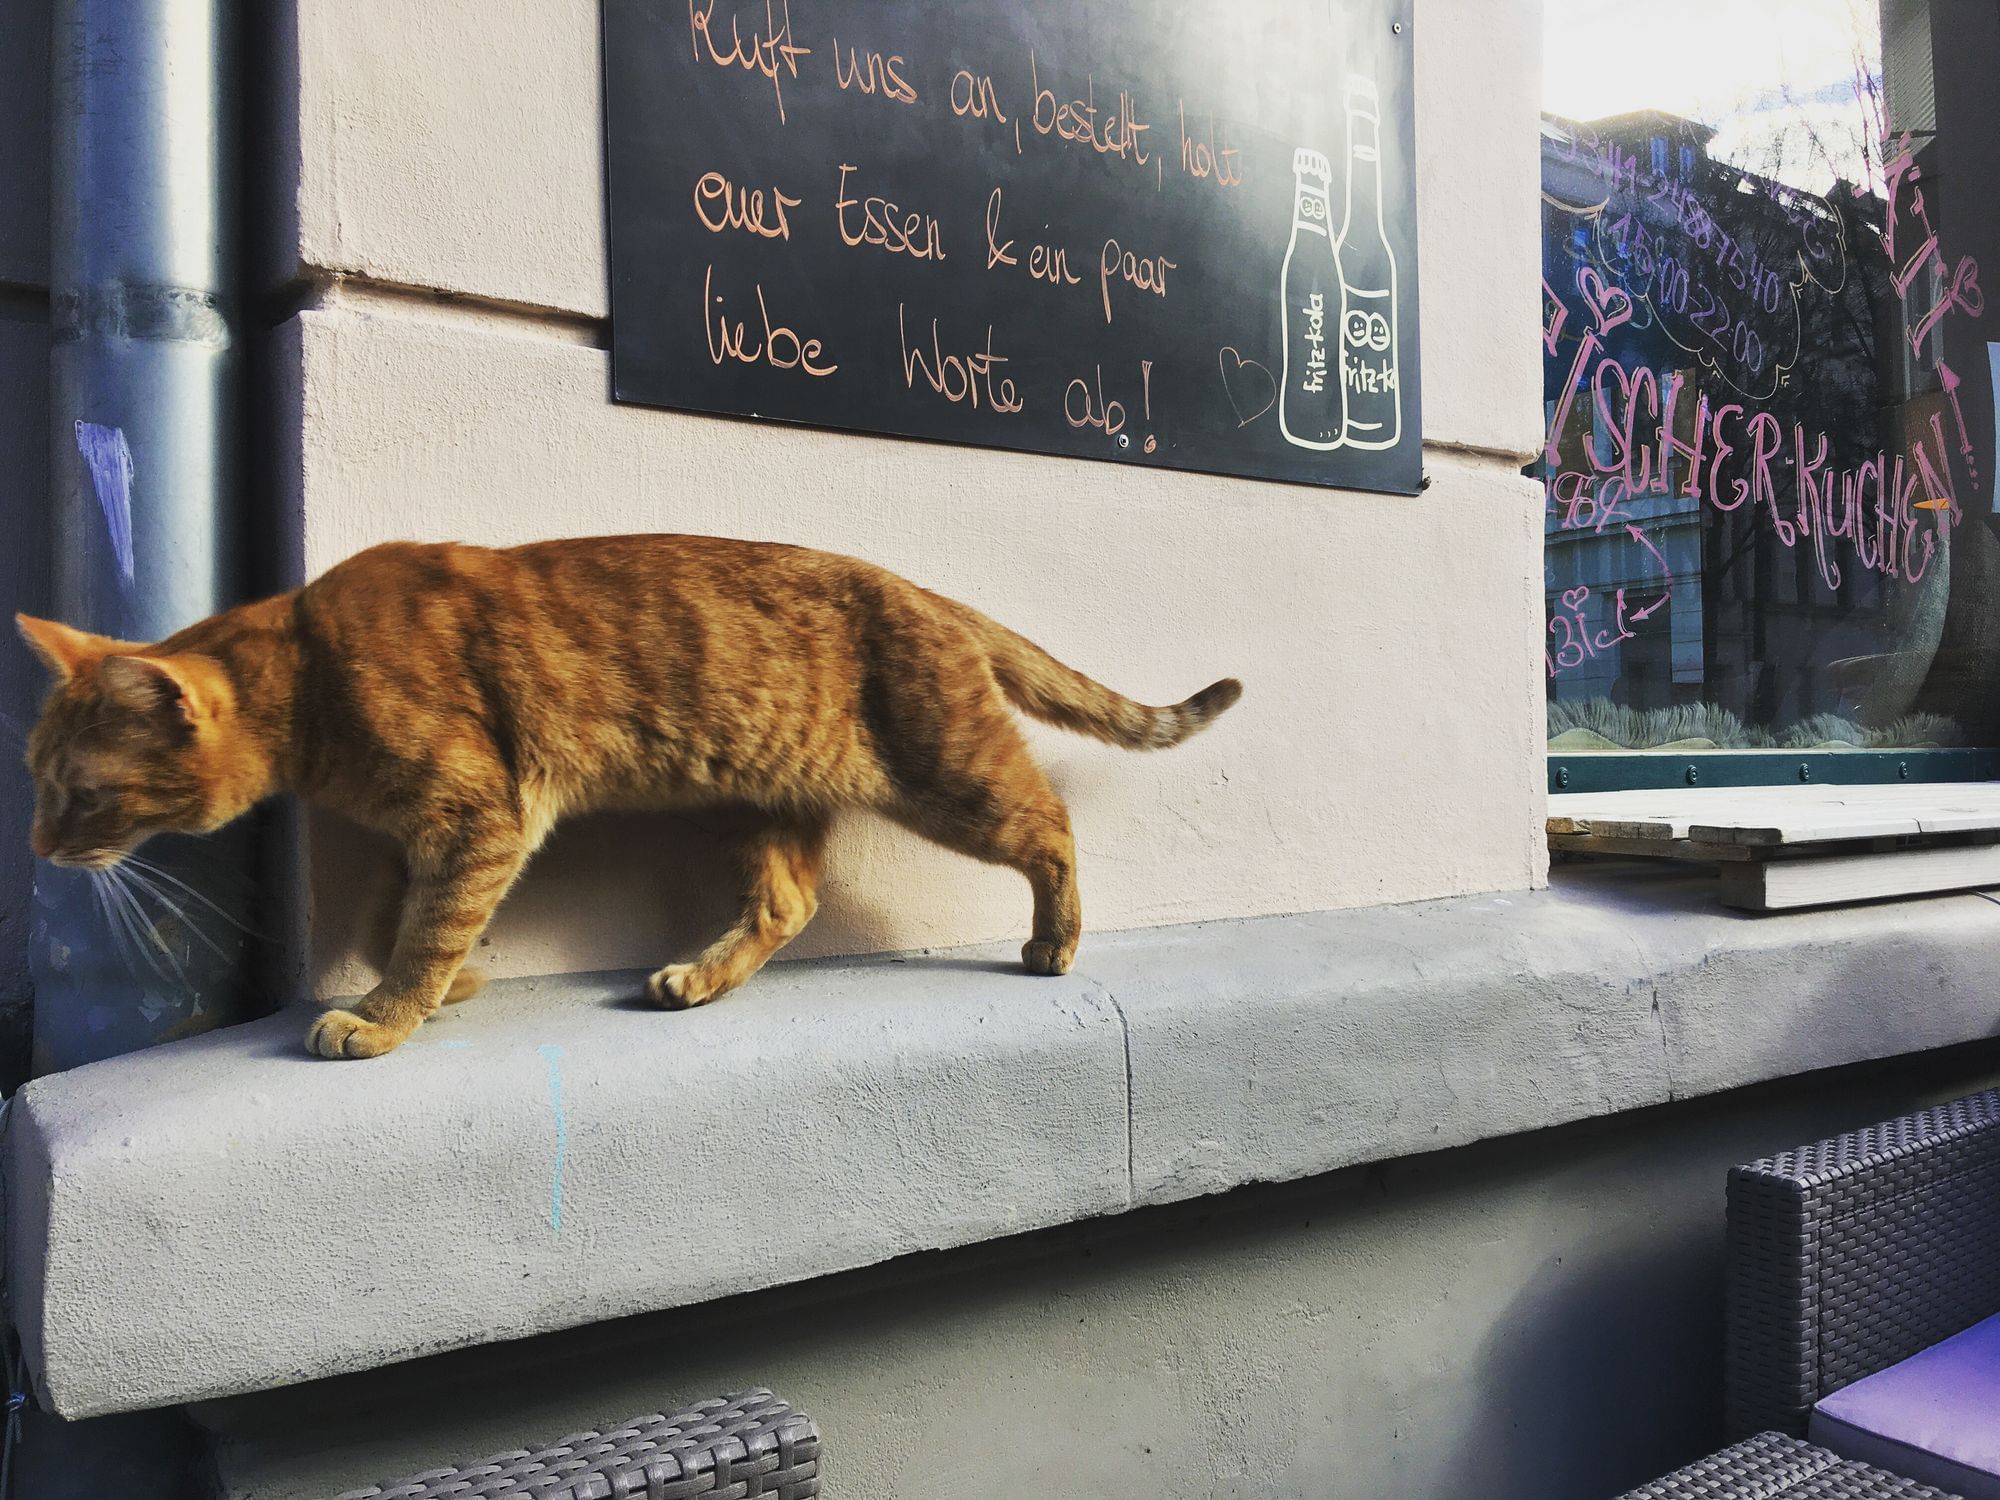 Ruft uns an, bestellt, holt
euer Essen & ein paar
liebe Worte ab!
fritz-kola
fritz-k
16:00-22:00
SCHER-KUCHEN